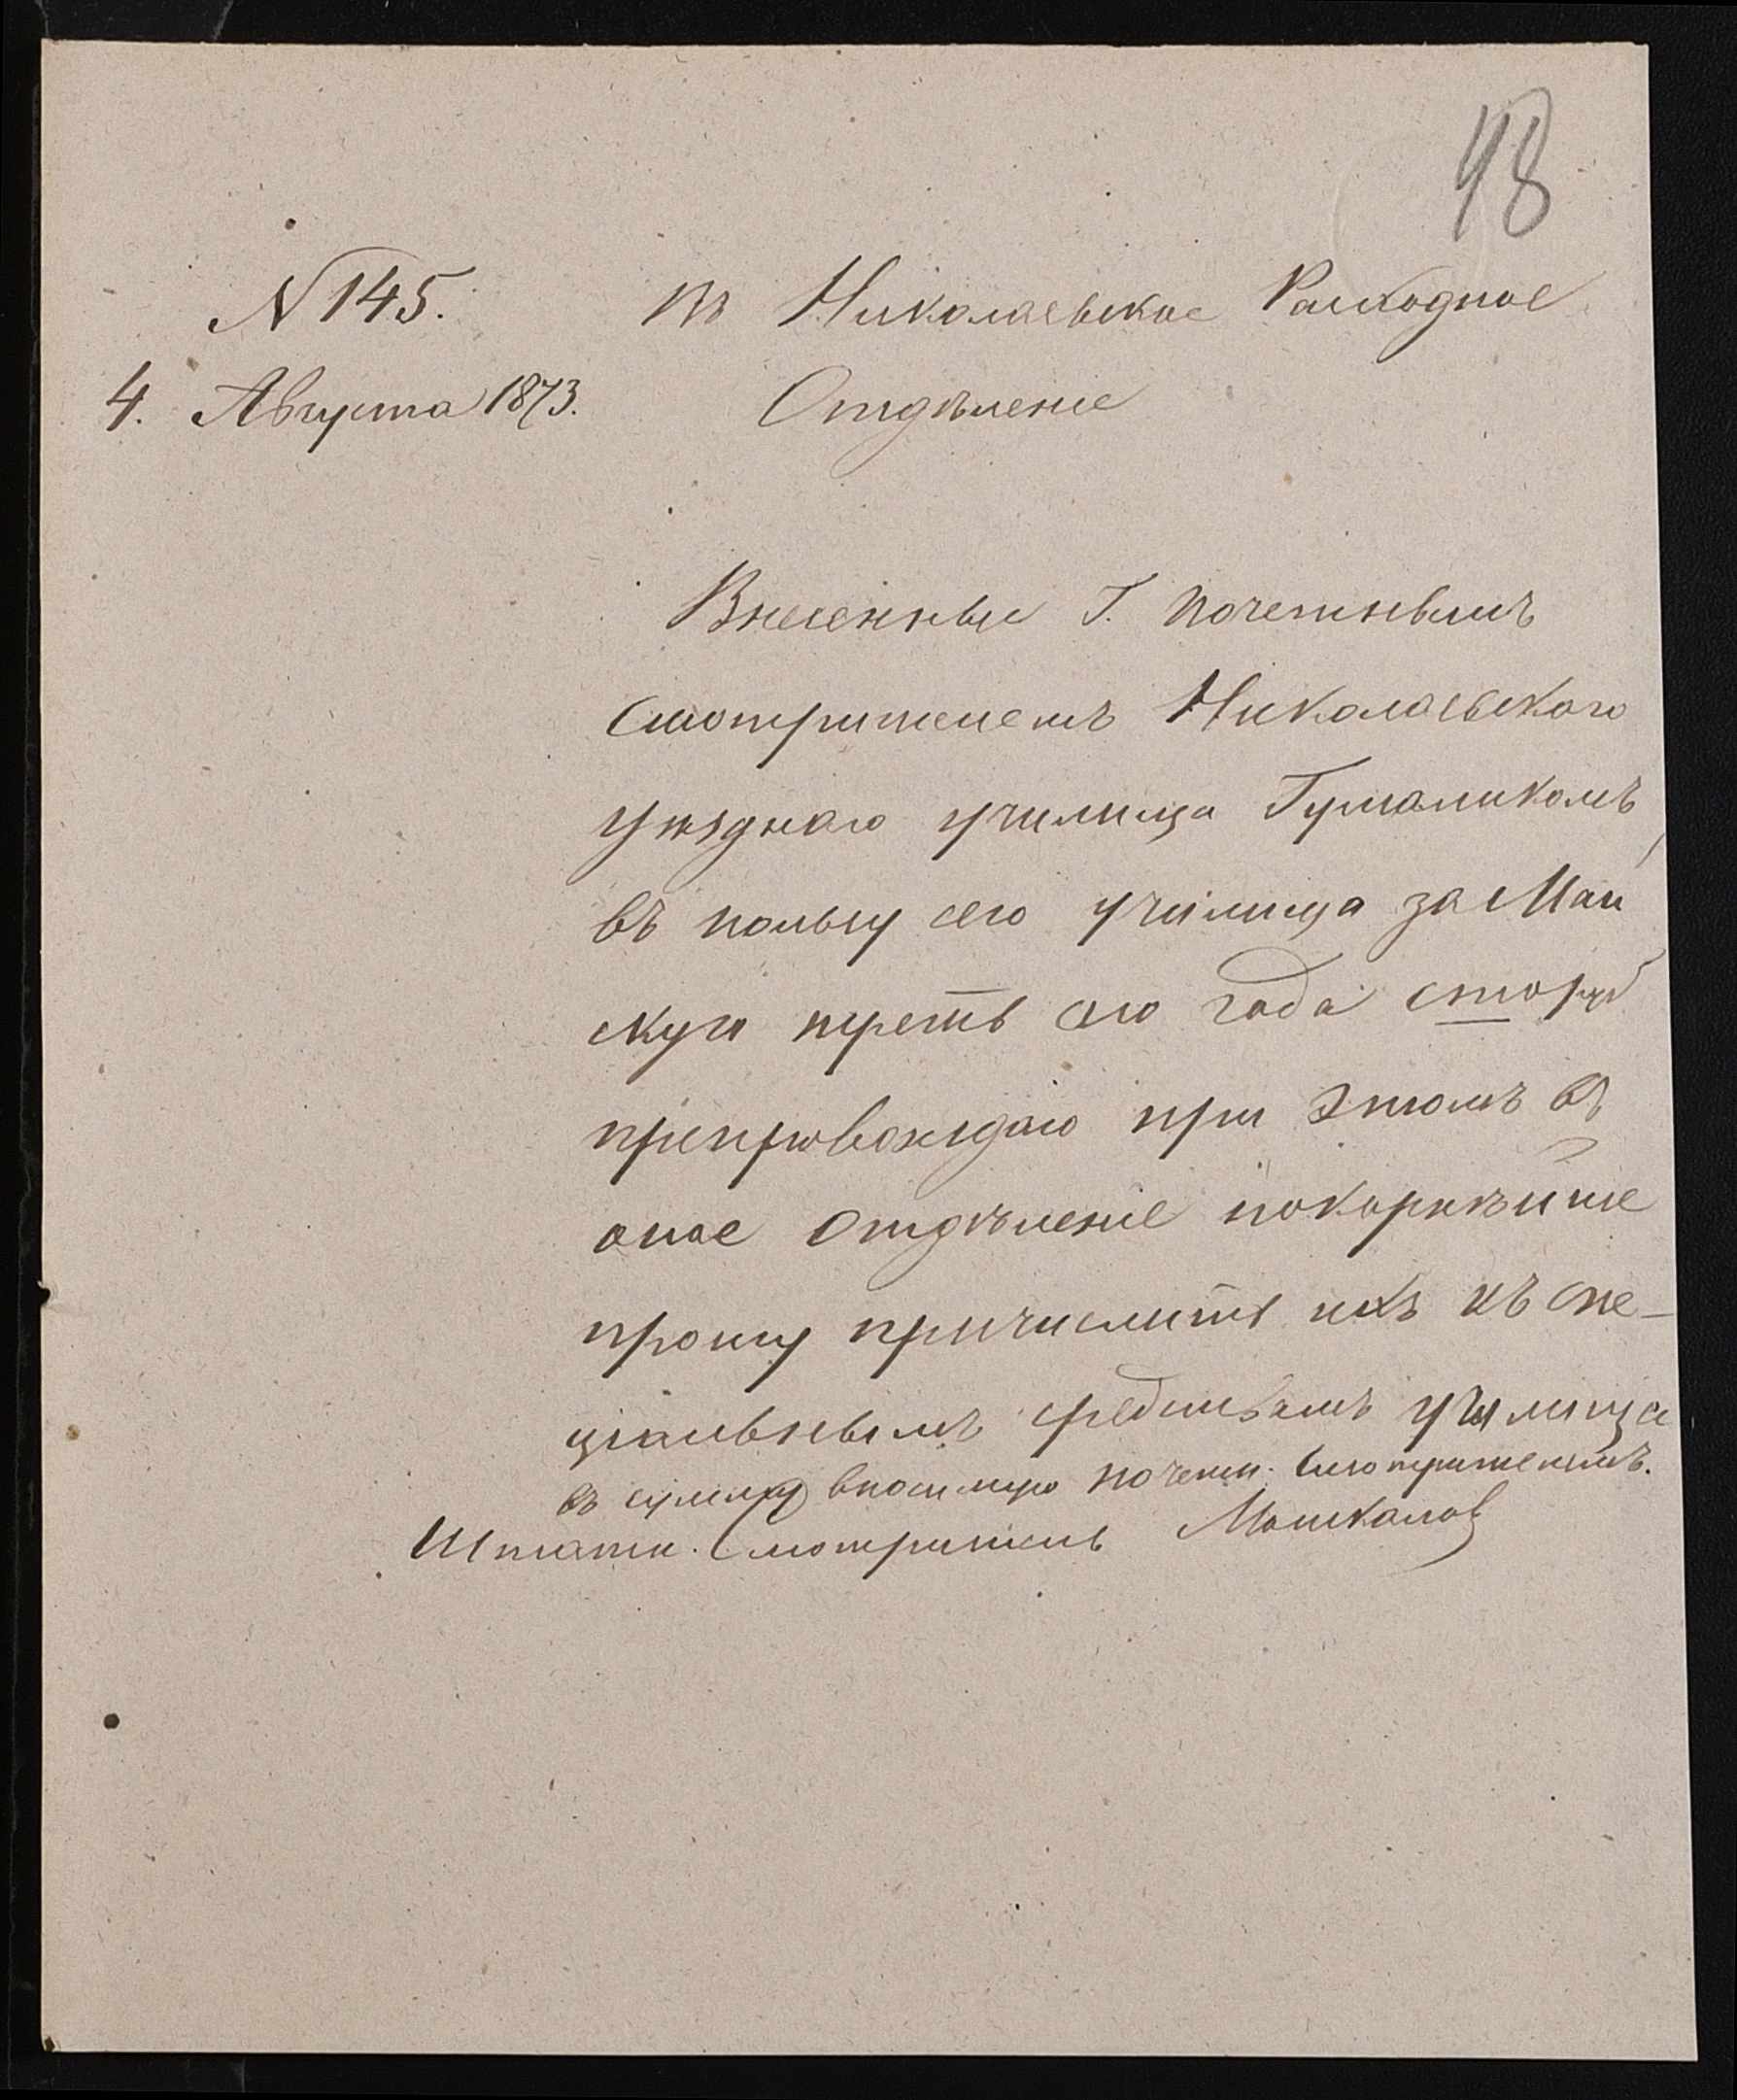 48
№ 145. Въ Николаевское Расходное
4. Августа 1873. Отдѣленіе
Внесенныя Г. Почетнымъ
Смотрителемъ Николаевскаго
уѣзднаго училища Гумаликомъ,
въ пользу сего училища за Май
скую треть сего года сто руб
препровождаю при этомъ въ
оное Отдѣленіе покорнѣйше
прошу причислить ихъ къ спе-
ціальнымъ средствамъ училища
въ сумму вносимую Почетн. Смотрителемъ.
Штатн. Смотритель Машкалов